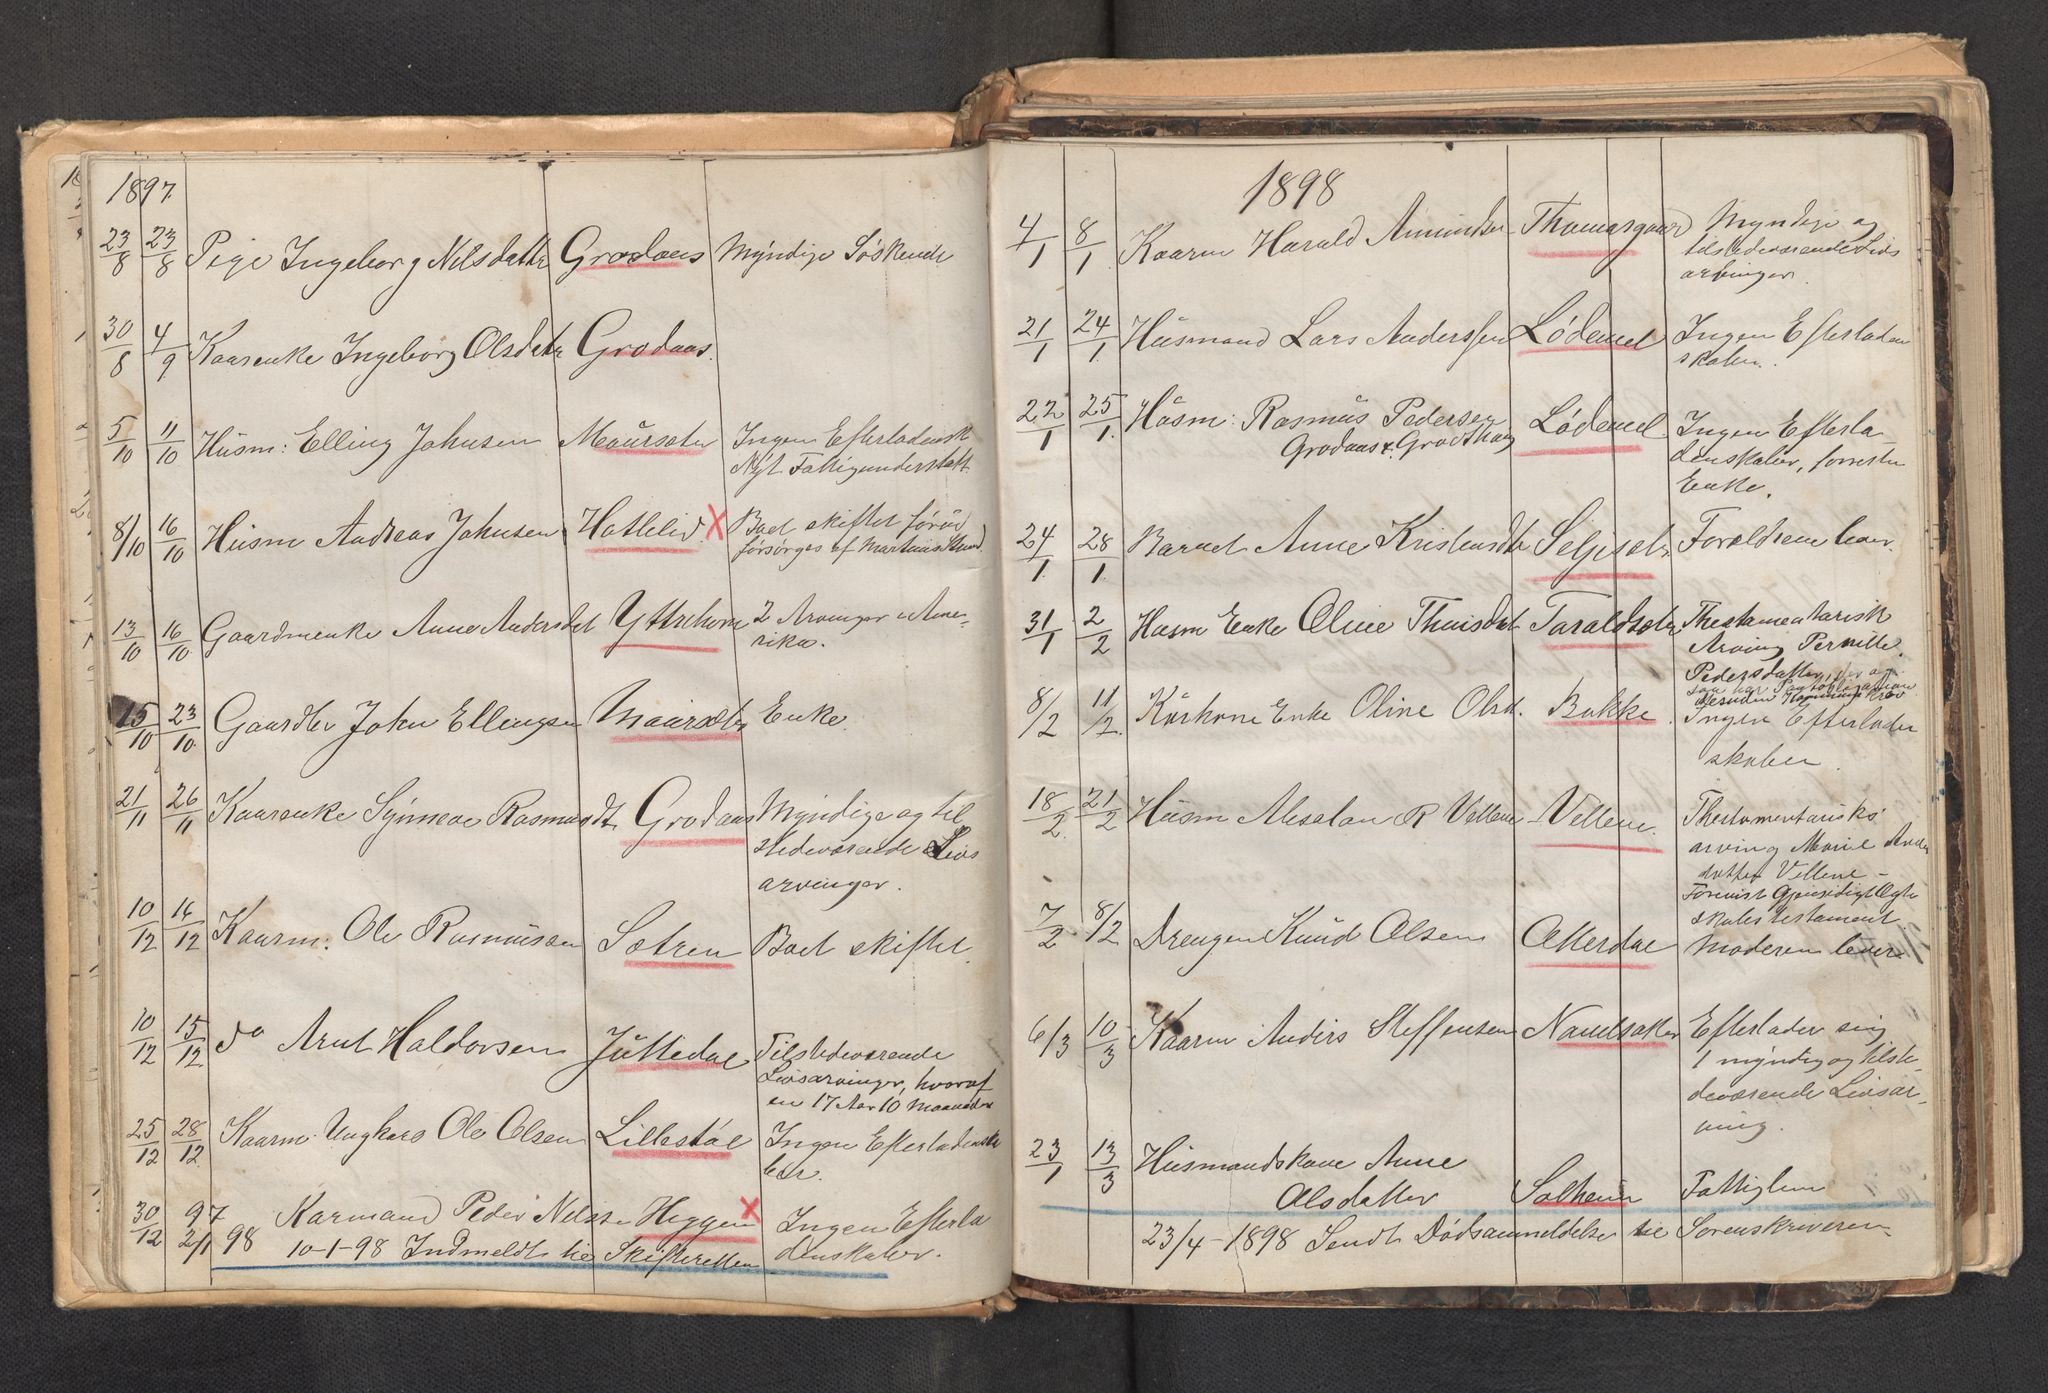 1897.
23/8 23/8 Pige Ingeborg Nilsdatter Grodaas Myndige Søskende
30/8 4/9 Kaarenke Ingeborg Olsdatr Grodaas.
5/10 11/10 Husm: Elling Johnsen Maurseter Ingen Efterladensk
Nyt Fattigunderstøtt.
8/10 16/10 Husm Andreas Johnsen Hatlelid X Boet skiftet förud
forsørges af Martinus
13/10 16/10 Gaardmenke Anne Andersdt Yttrehorn 2 Arvinger i Ame-
rika.
15/10 23/10 Gaardbr John Ellingsen Maurseter Enke.
21/11 26/11 Kaarenke Synneve Rasmusdt Grodaas Myndige og til
stedeværende Livs
arvinger.
10/12 14/12 Kaarm: Ole Rasmussen Sætren Boet skiftet.
10/12 15/12 do Arnt Haldorsen Juttedal Tilstedeværende
Livsarvinger, hvoraf
en 17 Aar 10 Maaneder
25/12 28/12 Kaarm. Ungkarl Ole Olsen Lillestøl Ingen Efterladenska
ber.
30/12 97 Karmand Peder Nilsen Heggen X Ingen Efterla
2/1 98 10-1-98 Indmeldt til Skifteretten denskaber.
1898
4/1 8/1 Kaarm Harald Amundsen Thomasgaard Myndige og
tilstedeværende Livs
arvinger.
21/1 24/1 Husmand Lars Anderssen Lødemel Ingen Efterladen
skaber.
22/1 25/1 Husm: Rasmus Pedersen Lødemel Ingen Efterla-
Grodaas e. Grodthaug denskaber, forresten
Enke.
24/1 28/1 Barnet Anne Kristensdtr Seljeset Foreldrene lever.
31/1 2/2 Husm Enke Oline Thuisdat Taraldseter Thestamentarisk
Arving Pernille
Pedersdatter, der og
saa har
desuden
8/2 11/2 Kaarkone Enke Oline Olsd. Bakke. Ingen Efterladen
skaber.
18/2 21/2 Husm Absalon R Vellene Vellene. Thestamentarisks
arving Marie Anders
datter Vellene -
Gjensidigt Egte
skabs testament
7/2 8/2 Drengen Knud Olsen Otterdal Moderen lever
6/3 10/3 Kaarm Anders Steffensen Navelsaker Efterlader sig
1 myndig og tilste-
deværende Livsar-
ving.
23/1 13/3 Husmandskone Anne
Olsdatter Solheim Fattiglem
23/4-1898 Sendt Dødsanmeldelse til Sorenskriveren